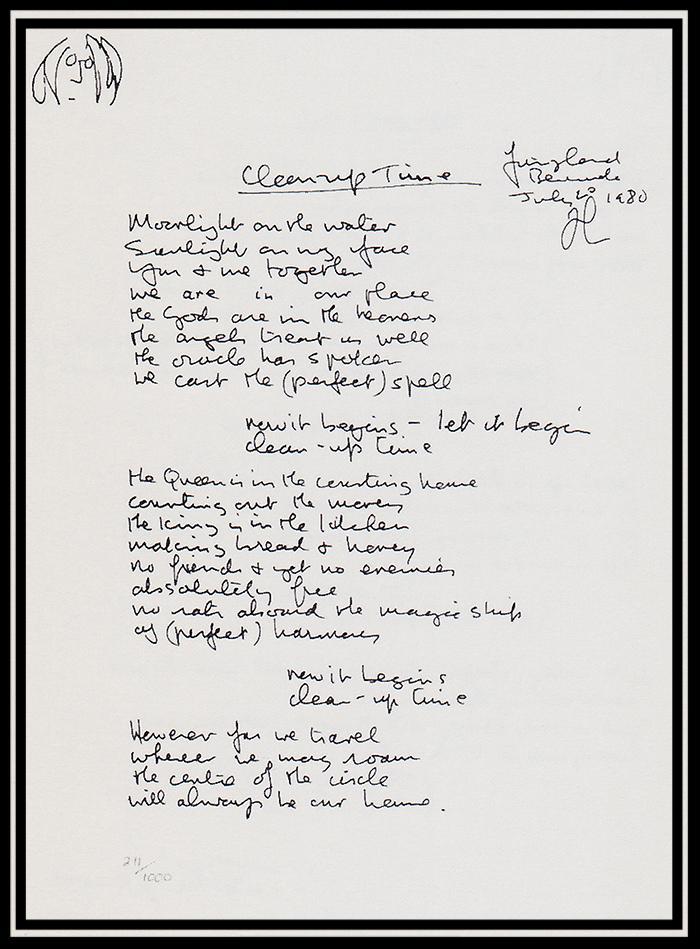 Cleanup Time
Fairylands
Bermuda
July 20 1980
JL
Moonlight on the water
Sunlight on my face
You & me together
we are in our place
the Gods are in the heavens
the angels treat us well
the oracle has spoken
we cast the (perfect) spell
now it begins - let it begin
clean-up time
the Queen is in the counting house
counting out the money
the King is in the kitchen
making bread & honey
no friends & yet no enemies
absolutely free
no rats aboard the magic ship
of (perfect) harmony
now it begins
clean-up time
However far we travel
wherever we may roam
the centre of the circle
will always be our home.
211/1000